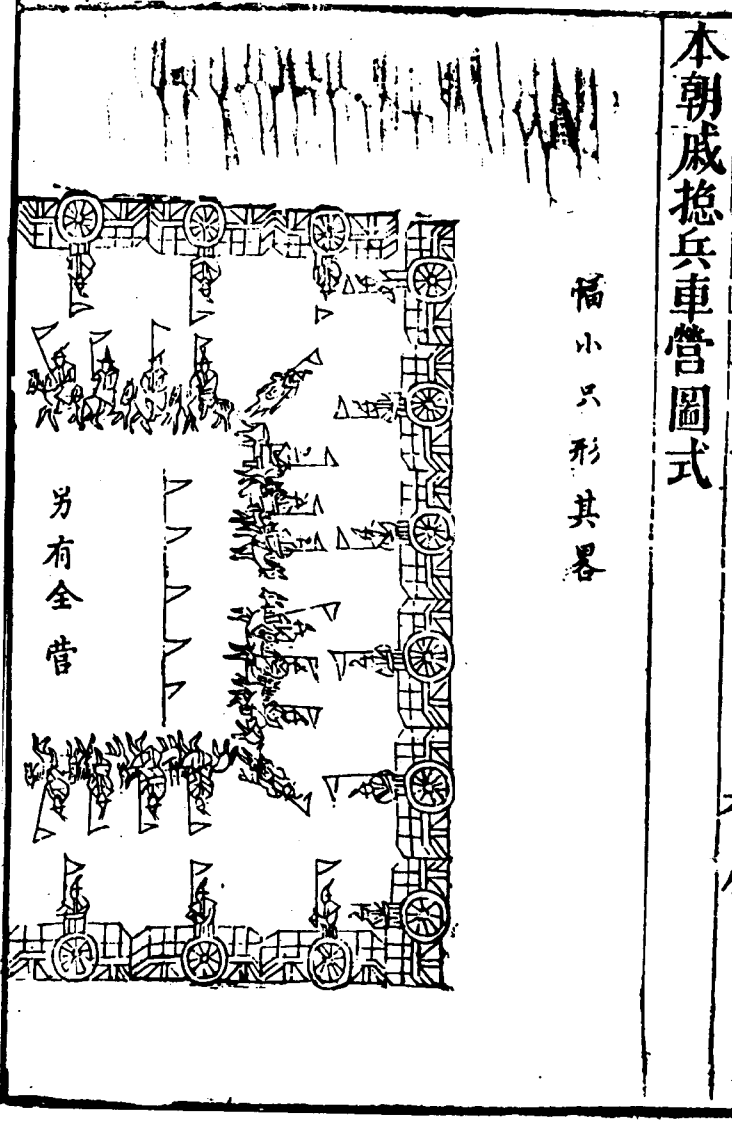 本朝戚㧾兵車營圖式
幅小只形其畧
另有全营